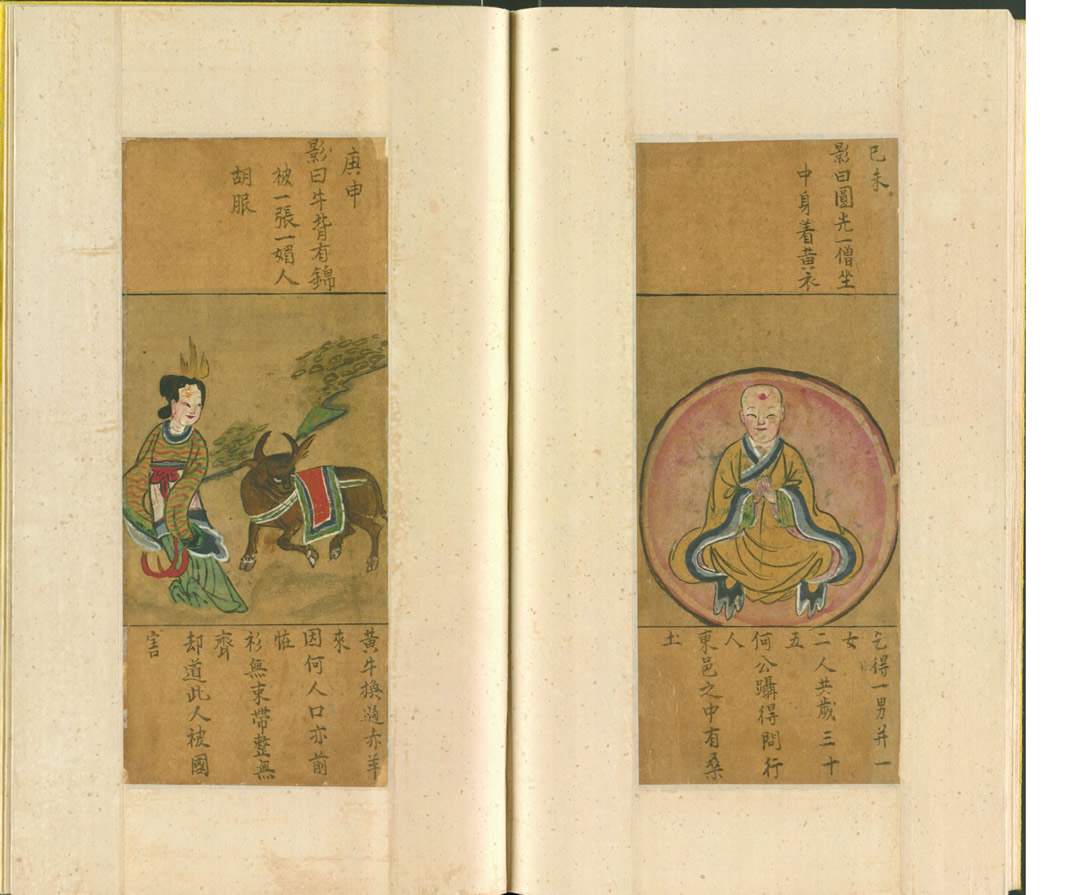 己未
影曰圓光一僧坐
中身着黄衣
乞得一男并一
女
二人共歲三十
五
何公躡得問行
人
東邑之中有桑
土
庚申
影曰牛背有錦
被一張一媚人
胡服
黄牛換過赤羊
來
因何人口亦前
怔
衫無束帶整無
齊
却道此人被國
害